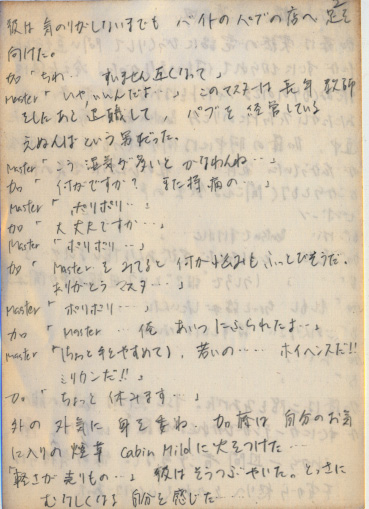 彼は気のりがしないまでも バイトのパブの店へ足を
向けた。
加「ちわ… すいません遅くなって」
Master「いや、いいんだよ…」このマスターは長年教師
をしたあと退職して、パブを経営している
という男だった。
Master「こう湿気が多いと かなわんね…」
加「何かですか? また持病の…」
Master「ポリポリ…」
加「大丈夫ですか…」
Master「ポリポリ…」
加「Masterをみてると何か悩みもふっとびそうだ、
ありがとうマスター…」
Master「ポリポリ…」
加「Master … 俺 あいつにふられたよ…」
Master「(ちょっと手をやすめて)、若いの…… ホイヘンスだ!!
ミリカンだ!!」
加「ちょっと休みます」
外の外気に身を委ね 加藤は自分のお気
に入りの煙草 Cabin Mildに火をつけた…
「軽さが売りもの…」彼はそうつぶやいた。とっさに
むなしくなる自分を感じた…